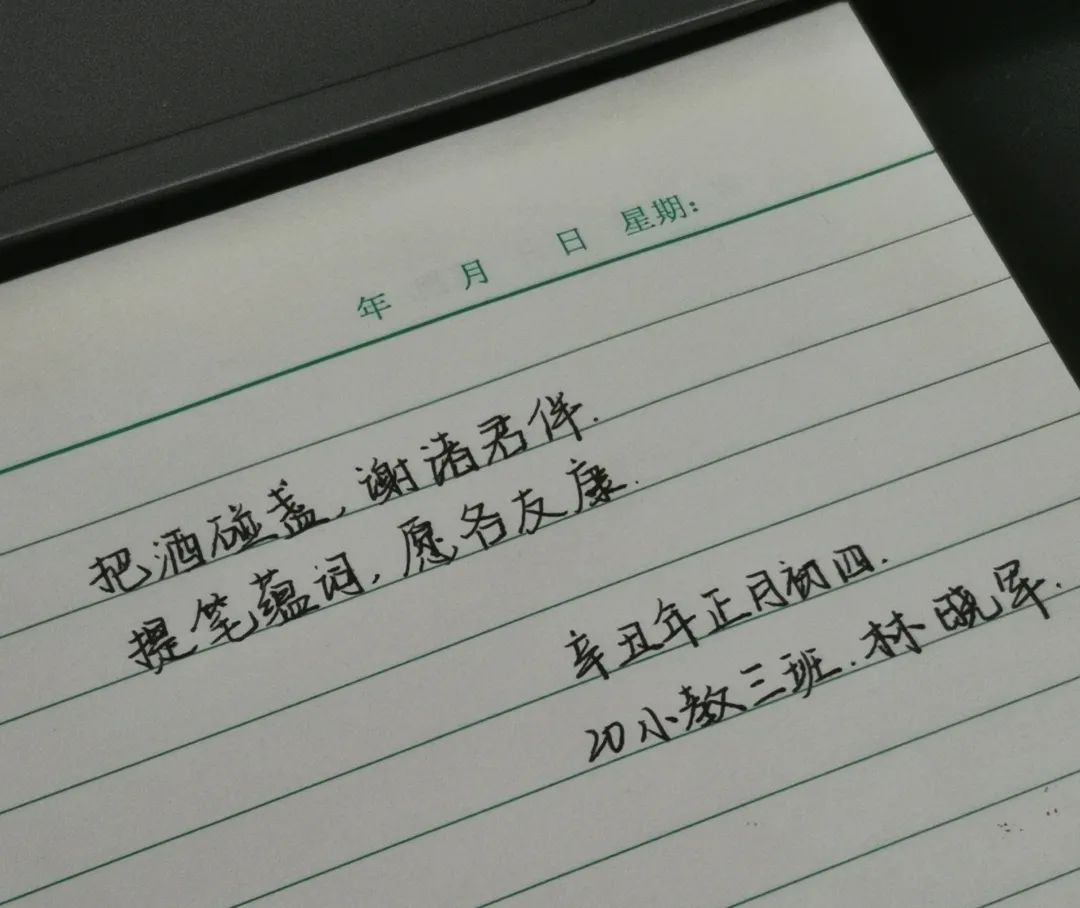 年 月 日 星期:
把酒碰盏,谢诸君伴.
提笔蕴词,愿各友康.
辛丑年正月初四.
20小教三班.林晓军.